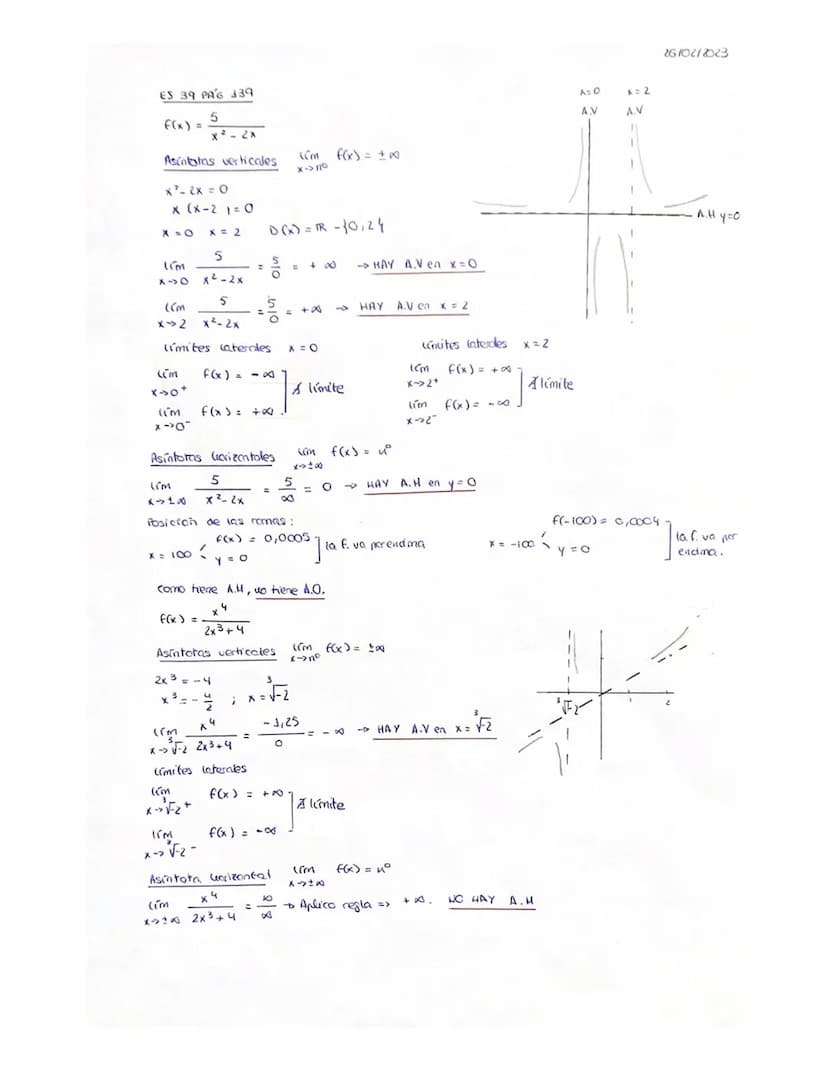 26/02/2023
ES 39 PÁG 139
f(x) = 5 / (x² - 2x)
x=0 x=2
A.V A.V
A.H y=0
Asíntotas verticales lím x→nº f(x) = ±∞
x² - 2x = 0
x (x-2) = 0
x = 0 x = 2 D(x) = ℝ - {0,2}
lím x→0 5 / (x² - 2x) = 5/0 = +∞ → HAY A.V en x=0
lím x→2 5 / (x² - 2x) = 5/0 = +∞ → HAY A.V en x = 2
límites laterales x=0
lím x→0⁺ f(x) = -∞
lím x→0⁻ f(x) = +∞
∄ límite
límites laterales x=2
lím x→2⁺ f(x) = +∞
lím x→2⁻ f(x) = -∞
∄ límite
Asíntotas horizontales lím x→±∞ f(x) = nº
lím x→±∞ 5 / (x² - 2x) = 5/∞ = 0 → HAY A.H en y=0
Posición de las ramas:
x = 100 f(x) = 0,0005
y = 0
la f. va por encima
x = -100 f(-100) = 0,0004
y = 0
la f. va por
encima.
como tiene A.H, no tiene A.O.
f(x) = x⁴ / (2x³ + 4)
Asíntotas verticales lím x→nº f(x) = ±∞
2x³ = -4
x³ = -4/2 ; x = ∛-2
lím x→∛-2 x⁴ / (2x³+4) = -1,25 / 0 = -∞ → HAY A.V en x = ∛-2
∛-2 1 2
límites laterales
lím x→∛-2⁺ f(x) = +∞
lím x→∛-2⁻ f(x) = -∞
∄ límite
Asíntota horizontal lím x→±∞ f(x) = nº
lím x→±∞ x⁴ / (2x³ + 4) = ∞/∞ → Aplico regla => +∞. NO HAY A.H